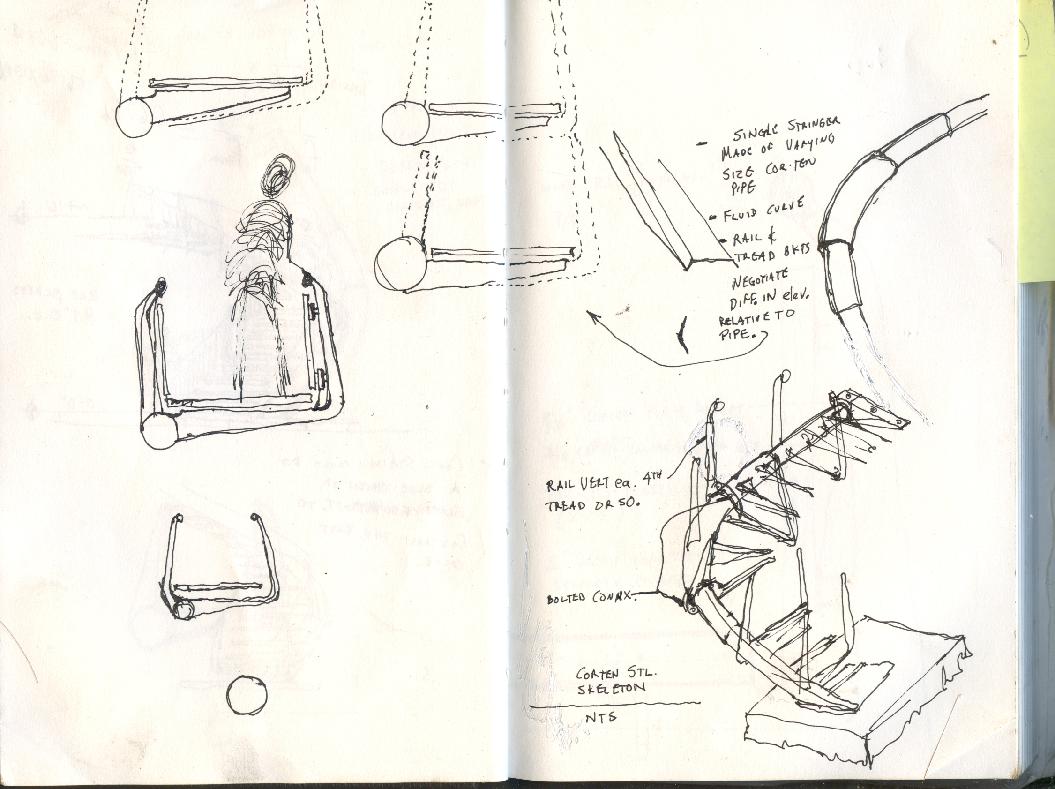 - SINGLE STRINGER
MADE OF VARYING
SIZE COR-TEN
PIPE
- FLUID CURVE
- RAIL &
TREAD BKTS
NEGOTIATE
DIFF. IN elev.
RELATIVE TO
PIPE.
RAIL VERT ea. 4TH
TREAD OR SO.
BOLTED CONNX.
CORTEN STL.
SKELETON
NTS